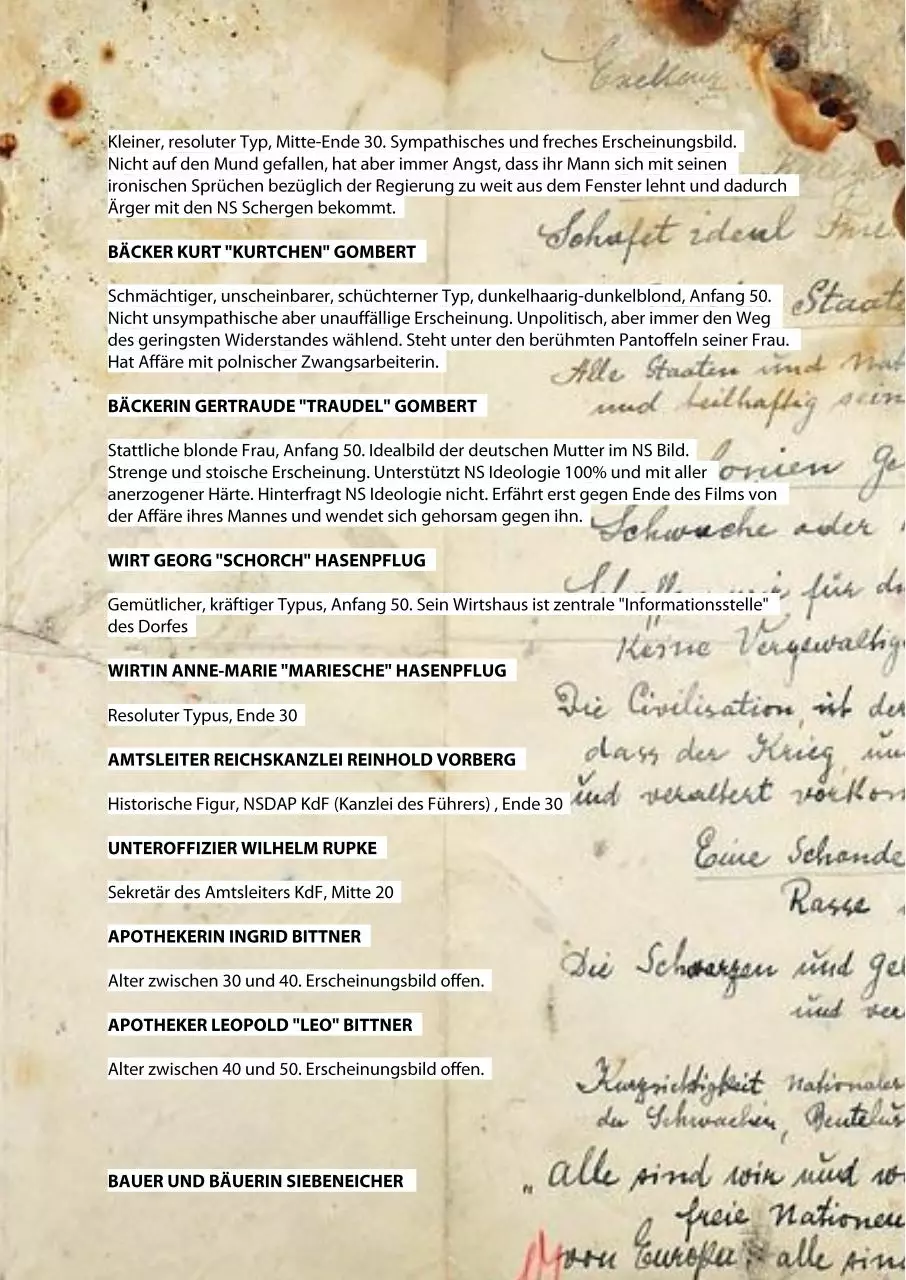 Exellenz
Kleiner, resoluter Typ, Mitte-Ende 30. Sympathisches und freches Erscheinungsbild.
Nicht auf den Mund gefallen, hat aber immer Angst, dass ihr Mann sich mit seinen
ironischen Sprüchen bezüglich der Regierung zu weit aus dem Fenster lehnt und dadurch
Ärger mit den NS Schergen bekommt.
Schafet ideal
BÄCKER KURT "KURTCHEN" GOMBERT
Schmächtiger, unscheinbarer, schüchterner Typ, dunkelhaarig-dunkelblond, Anfang 50.
Staat
Nicht unsympathische aber unauffällige Erscheinung. Unpolitisch, aber immer den Weg
des geringsten Widerstandes wählend. Steht unter den berühmten Pantoffeln seiner Frau.
Hat Affäre mit polnischer Zwangsarbeiterin.
Alle Staaten und
BÄCKERIN GERTRAUDE "TRAUDEL" GOMBERT
und teilhaftig sein
Stattliche blonde Frau, Anfang 50. Idealbild der deutschen Mutter im NS Bild.
Strenge und stoische Erscheinung. Unterstützt NS Ideologie 100% und mit aller
onien Ge
anerzogener Härte. Hinterfragt NS Ideologie nicht. Erfährt erst gegen Ende des Films von
der Affäre ihres Mannes und wendet sich gehorsam gegen ihn.
Schwache oder
WIRT GEORG "SCHORCH" HASENPFLUG
für
Gemütlicher, kräftiger Typus, Anfang 50. Sein Wirtshaus ist zentrale "Informationsstelle"
des Dorfes
Keine Vergewaltig
WIRTIN ANNE-MARIE "MARIESCHE" HASENPFLUG
Resoluter Typus, Ende 30
Die Civilisation ist der
AMTSLEITER REICHSKANZLEI REINHOLD VORBERG
dass der Krieg un
Historische Figur, NSDAP KdF (Kanzlei des Führers) , Ende 30
und veraltert vorkom
UNTEROFFIZIER WILHELM RUPKE
Eine Schande
Sekretär des Amtsleiters KdF, Mitte 20
Rasse
APOTHEKERIN INGRID BITTNER
Alter zwischen 30 und 40. Erscheinungsbild offen.
Die Schwarzen und Gel
und ver
APOTHEKER LEOPOLD "LEO" BITTNER
Alter zwischen 40 und 50. Erscheinungsbild offen.
Kurzsichtigkeit nationaler
der Schwachen,
BAUER UND BÄUERIN SIEBENEICHER
„ Alle sind wir und wo
freie Nationen
von Europa alle sin